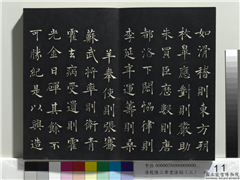 如滑稽則東方朔
枚皋應對則嚴助
朱買臣歷數則唐
都洛下閎協律則
李延年運籌則桑
羊奉使則張騫
蘇武將率則衛青
霍去病受遺則霍
光金日磾其餘不
可勝紀是以興造
11